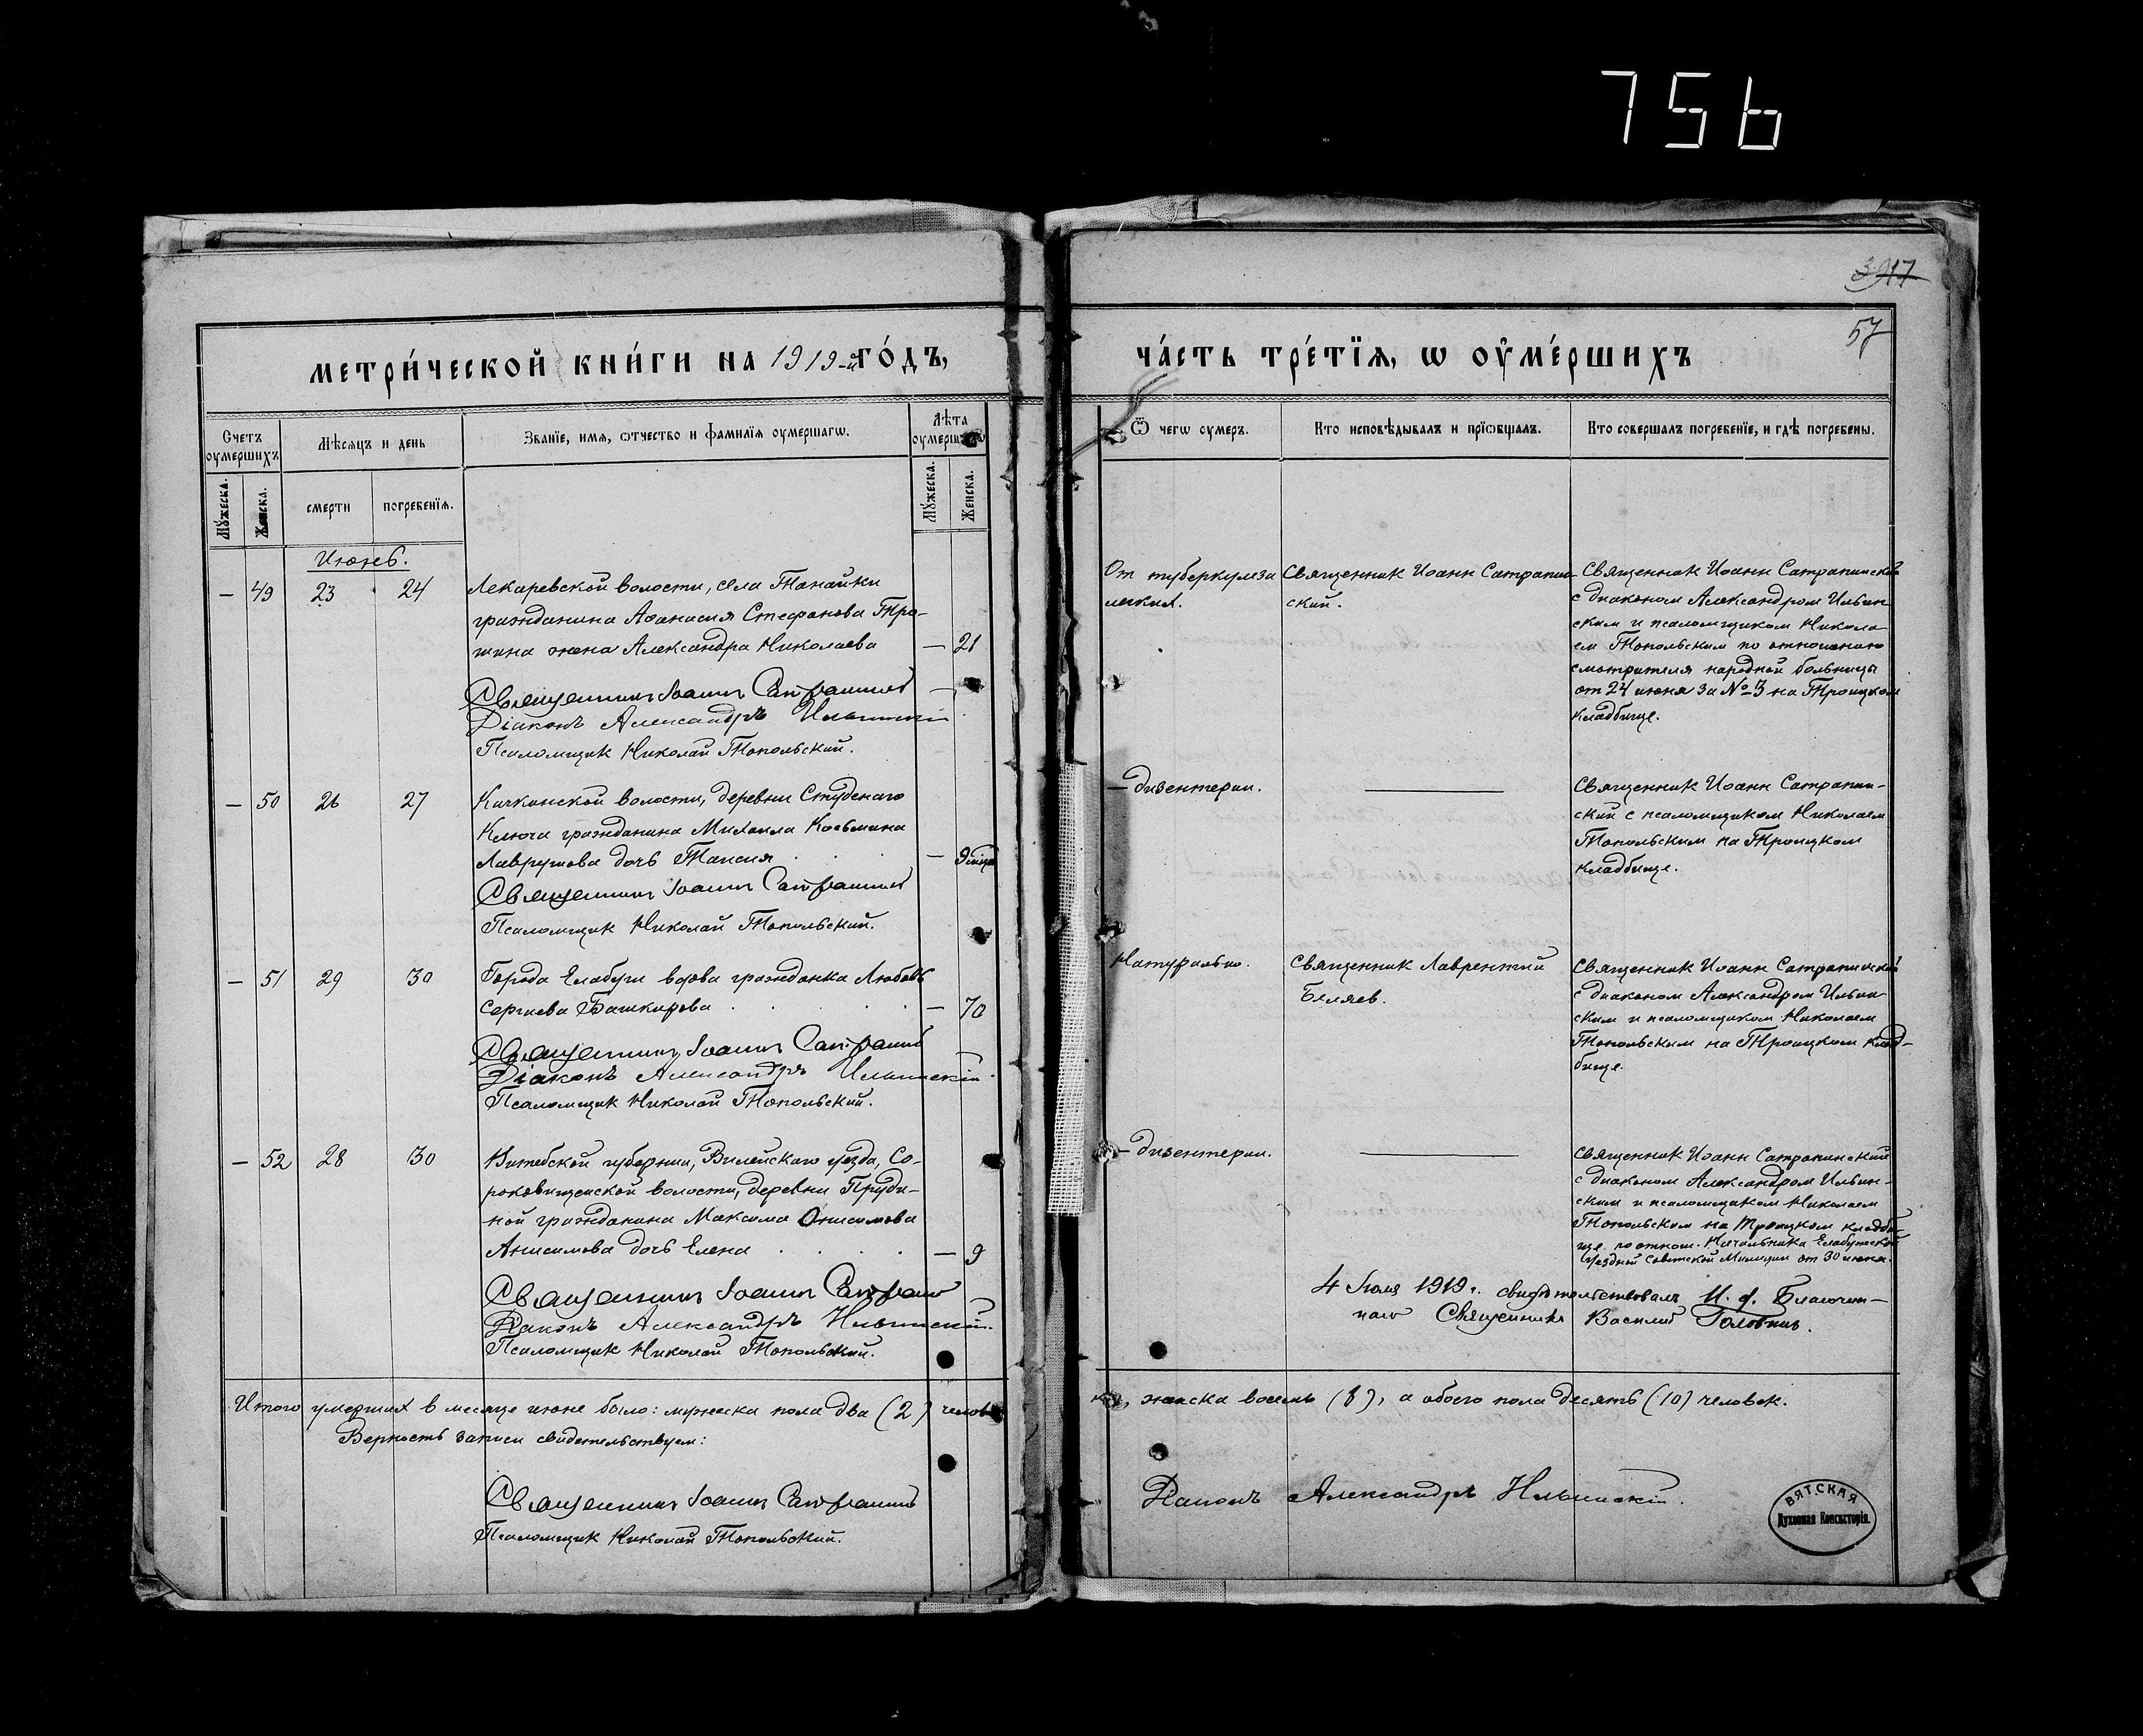 756
3917
57
МЕТРИ́ЧЕСКОЙ КНИ́ГИ НА 1919-й ГО́ДЪ,
ЧА́СТЬ ТРЕ́ТІЯ, Ѡ ОУМЕ́РШИХЪ
Счетъ оумершихъ
Мѣсяцъ и день
Званїе, имя, ѿтчество и фамилїя оумершагѡ.
Лѣта оумершагѡ
Мужеска.
Женска.
смерти
погребенїя.
Мужеска.
Женска.
Ѿ чегѡ оумеръ.
Кто исповѣдывалъ и прїѡбщалъ.
Кто совершалъ погребенїе, и гдѣ погребены.
Июнь.
— 49 23 24
Лекаревской волости, села Танайки
гражданина Афанасия Стефанова Тра-
шина жена Александра Николаева — 21
Священникъ Іоаннъ Сатрапинскій
Діаконъ Александръ Ильинскій
Псаломщик Николай Топольский.
От туберкулеза
легких.
Священник Иоанн Сатрапин-
ский.
Священник Иоанн Сатрапинский
с диаконом Александром Ильин
ским и псаломщиком Никола-
ем Топольским по отношению
смотрителя народной больницы
от 24 июня за № 3 на Троицком
кладбище.
— 50 26 27
Качкинской волости, деревни Студенаго
Ключа гражданина Михаила Косьмина
Лаврушова дочь Таисия — 9 мца
Священникъ Іоаннъ Сатрапинскій
Псаломщик Николай Топольский.
— дизентерии.
Священник Иоанн Сатрапин-
ский с псаломщиком Николаем
Топольским на Троицком
кладбище.
— 51 29 30
Города Елабуги вдова гражданка Любовь
Сергиева Башкирова — 70
Священникъ Іоаннъ Сатрапинскій
Діаконъ Александръ Ильинскій.
Псаломщик Николай Топольский.
Натурально.
Священник Лаврентий
Беляев.
Священник Иоанн Сатрапинский
с диаконом Александром Ильин
ским и псаломщиком Николаем
Топольским на Троицком клад-
бище.
— 52 28 30
Витебской губернии, Вилейскаго уезда, Со-
роковищенской волости, деревни Пруди-
ной гражданина Максима Онисимова
Анисимова дочь Елена — 9
Священникъ Іоаннъ Сатрапинскій
Діаконъ Александръ Ильинскій.
Псаломщик Николай Топольский.
— дизентерии.
Священник Иоанн Сатрапинский
с диаконом Александром Ильин-
ским и псаломщиком Николаем
Топольским на Троицком кладби-
ще по отнош. Начальника Елабужской
Уездной Советской Милиции от 30 июня.
4 Іюля 1919 г. свидѣтельствовалъ И. д. Благочин-
наго Священникъ Василій Головинъ.
Итого умерших в месяце июне было: мужеска пола два (2) челове-
ка, женска восемь (8), а обоего пола десять (10) человек.
Верность записи свидетельствуем:
Священникъ Іоаннъ Сатрапинскій
Діаконъ Александръ Ильинскій.
Псаломщик Николай Топольский.
ВЯТСКАЯ
Духовная Консисторія.